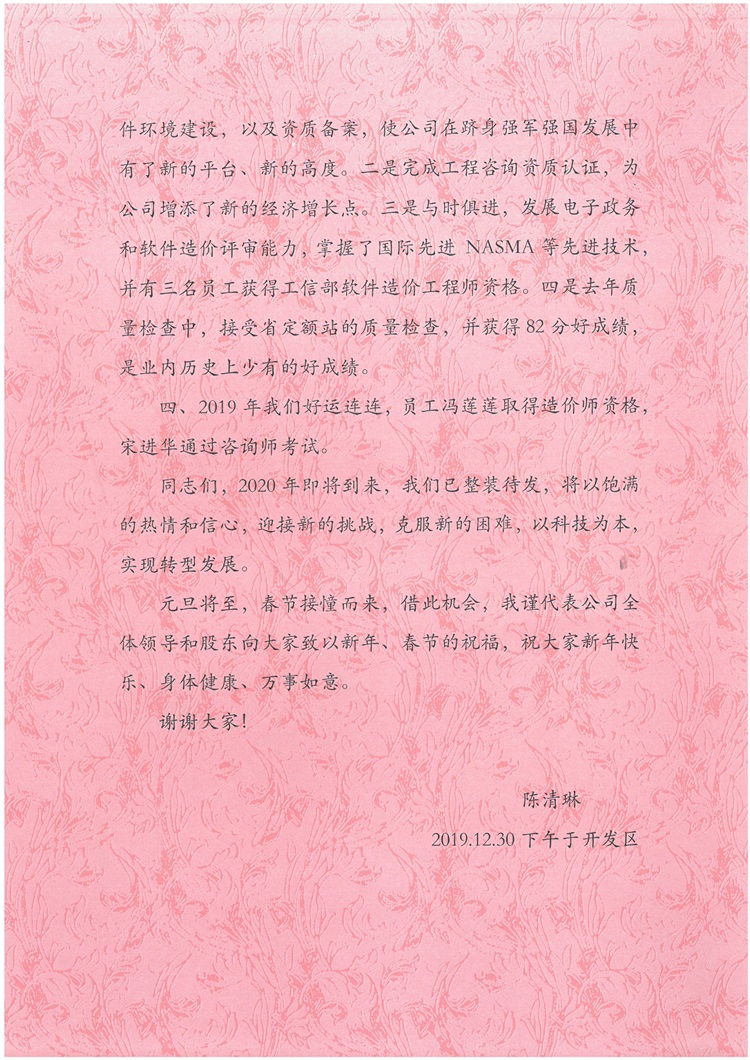 件环境建设，以及资质备案，使公司在跻身强军强国发展中
有了新的平台、新的高度。二是完成工程咨询资质认证，为
公司增添了新的经济增长点。三是与时俱进，发展电子政务
和软件造价评审能力，掌握了国际先进 NASMA 等先进技术，
并有三名员工获得工信部软件造价工程师资格。四是去年质
量检查中，接受省定额站的质量检查，并获得 82 分好成绩，
是业内历史上少有的好成绩。
四、2019 年我们好运连连，员工冯莲莲取得造价师资格，
宋进华通过咨询师考试。
同志们，2020 年即将到来，我们已整装待发，将以饱满
的热情和信心，迎接新的挑战，克服新的困难，以科技为本，
实现转型发展。
元旦将至，春节接憧而来，借此机会，我谨代表公司全
体领导和股东向大家致以新年、春节的祝福，祝大家新年快
乐、身体健康、万事如意。
谢谢大家！
陈清琳
2019.12.30 下午于开发区